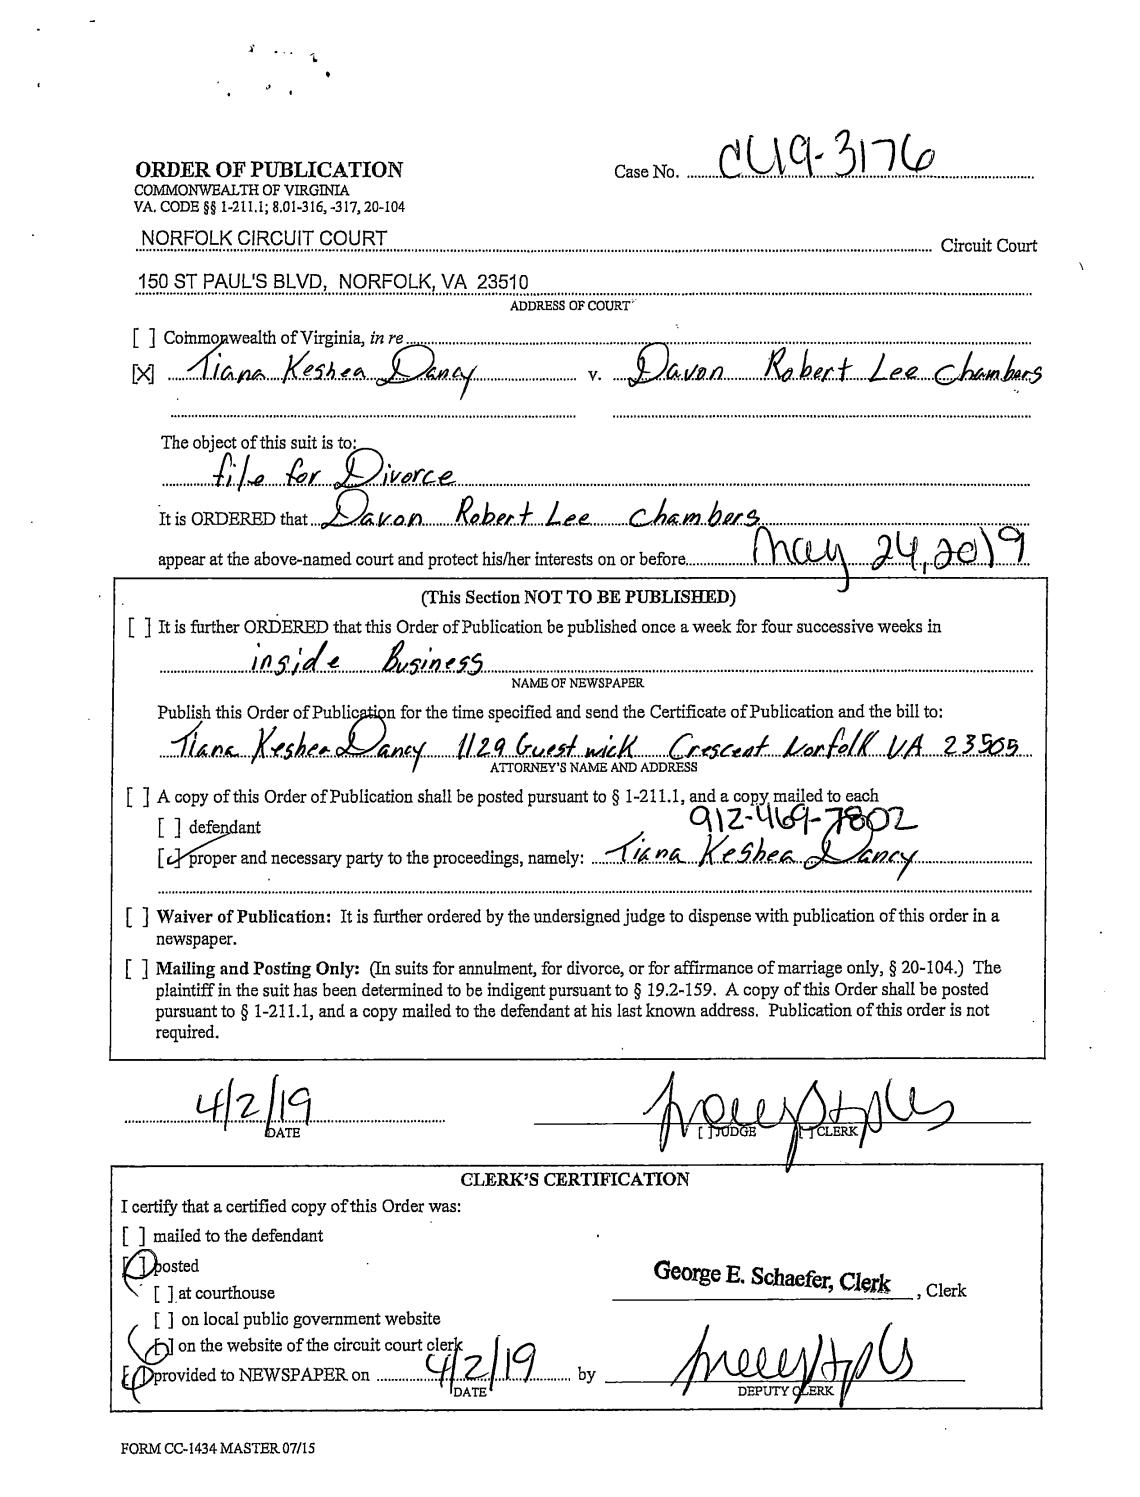 ORDER OF PUBLICATION
Case No. CL19-3176
COMMONWEALTH OF VIRGINIA
VA. CODE §§ 1-211.1; 8.01-316, -317, 20-104
NORFOLK CIRCUIT COURT Circuit Court
150 ST PAUL'S BLVD, NORFOLK, VA 23510
ADDRESS OF COURT
[ ] Commonwealth of Virginia, in re
[X] Tiana Keshea Dancy v. Davon Robert Lee Chambers
The object of this suit is to:
file for Divorce
It is ORDERED that Davon Robert Lee Chambers
appear at the above-named court and protect his/her interests on or before May 24, 2019
(This Section NOT TO BE PUBLISHED)
[ ] It is further ORDERED that this Order of Publication be published once a week for four successive weeks in
inside Business
NAME OF NEWSPAPER
Publish this Order of Publication for the time specified and send the Certificate of Publication and the bill to:
Tiana Keshea Dancy 1129 Guest wick Crescent Norfolk VA 23505
ATTORNEY'S NAME AND ADDRESS
[ ] A copy of this Order of Publication shall be posted pursuant to § 1-211.1, and a copy mailed to each
[ ] defendant 912-469-7802
[✓] proper and necessary party to the proceedings, namely: Tiana Keshea Dancy
[ ] Waiver of Publication: It is further ordered by the undersigned judge to dispense with publication of this order in a
newspaper.
[ ] Mailing and Posting Only: (In suits for annulment, for divorce, or for affirmance of marriage only, § 20-104.) The
plaintiff in the suit has been determined to be indigent pursuant to § 19.2-159. A copy of this Order shall be posted
pursuant to § 1-211.1, and a copy mailed to the defendant at his last known address. Publication of this order is not
required.
4/2/19
DATE [ ] JUDGE [ ] CLERK
CLERK'S CERTIFICATION
I certify that a certified copy of this Order was:
[ ] mailed to the defendant
[ ] posted
George E. Schaefer, Clerk, Clerk
[ ] at courthouse
[ ] on local public government website
[ ] on the website of the circuit court clerk
[ ] provided to NEWSPAPER on 4/2/19 by
DATE DEPUTY CLERK
FORM CC-1434 MASTER 07/15